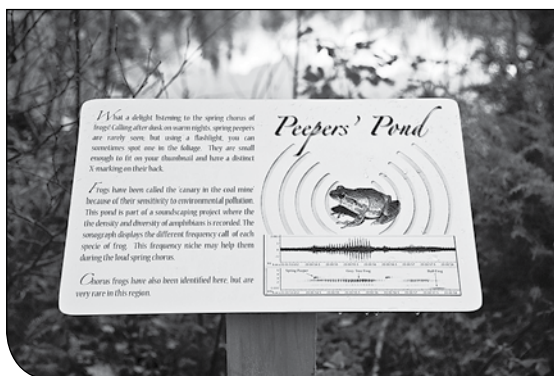 What a delight listening to the spring chorus of
frogs! Calling after dusk on warm nights, spring peepers
are rarely seen, but using a flashlight, you can
sometimes spot one in the foliage. They are small
enough to fit on your thumbnail and have a distinct
X-marking on their back.
Frogs have been called the 'canary in the coal mine'
because of their sensitivity to environmental pollution.
This pond is part of a soundscaping project where the
the density and diversity of amphibians is recorded. The
sonagraph displays the different frequency call of each
specie of frog. This frequency niche may help them
during the loud spring chorus.
Chorus frogs have also been identified here, but are
very rare in this region.
Peepers' Pond
Spring Peeper
Grey Tree Frog
Bull Frog